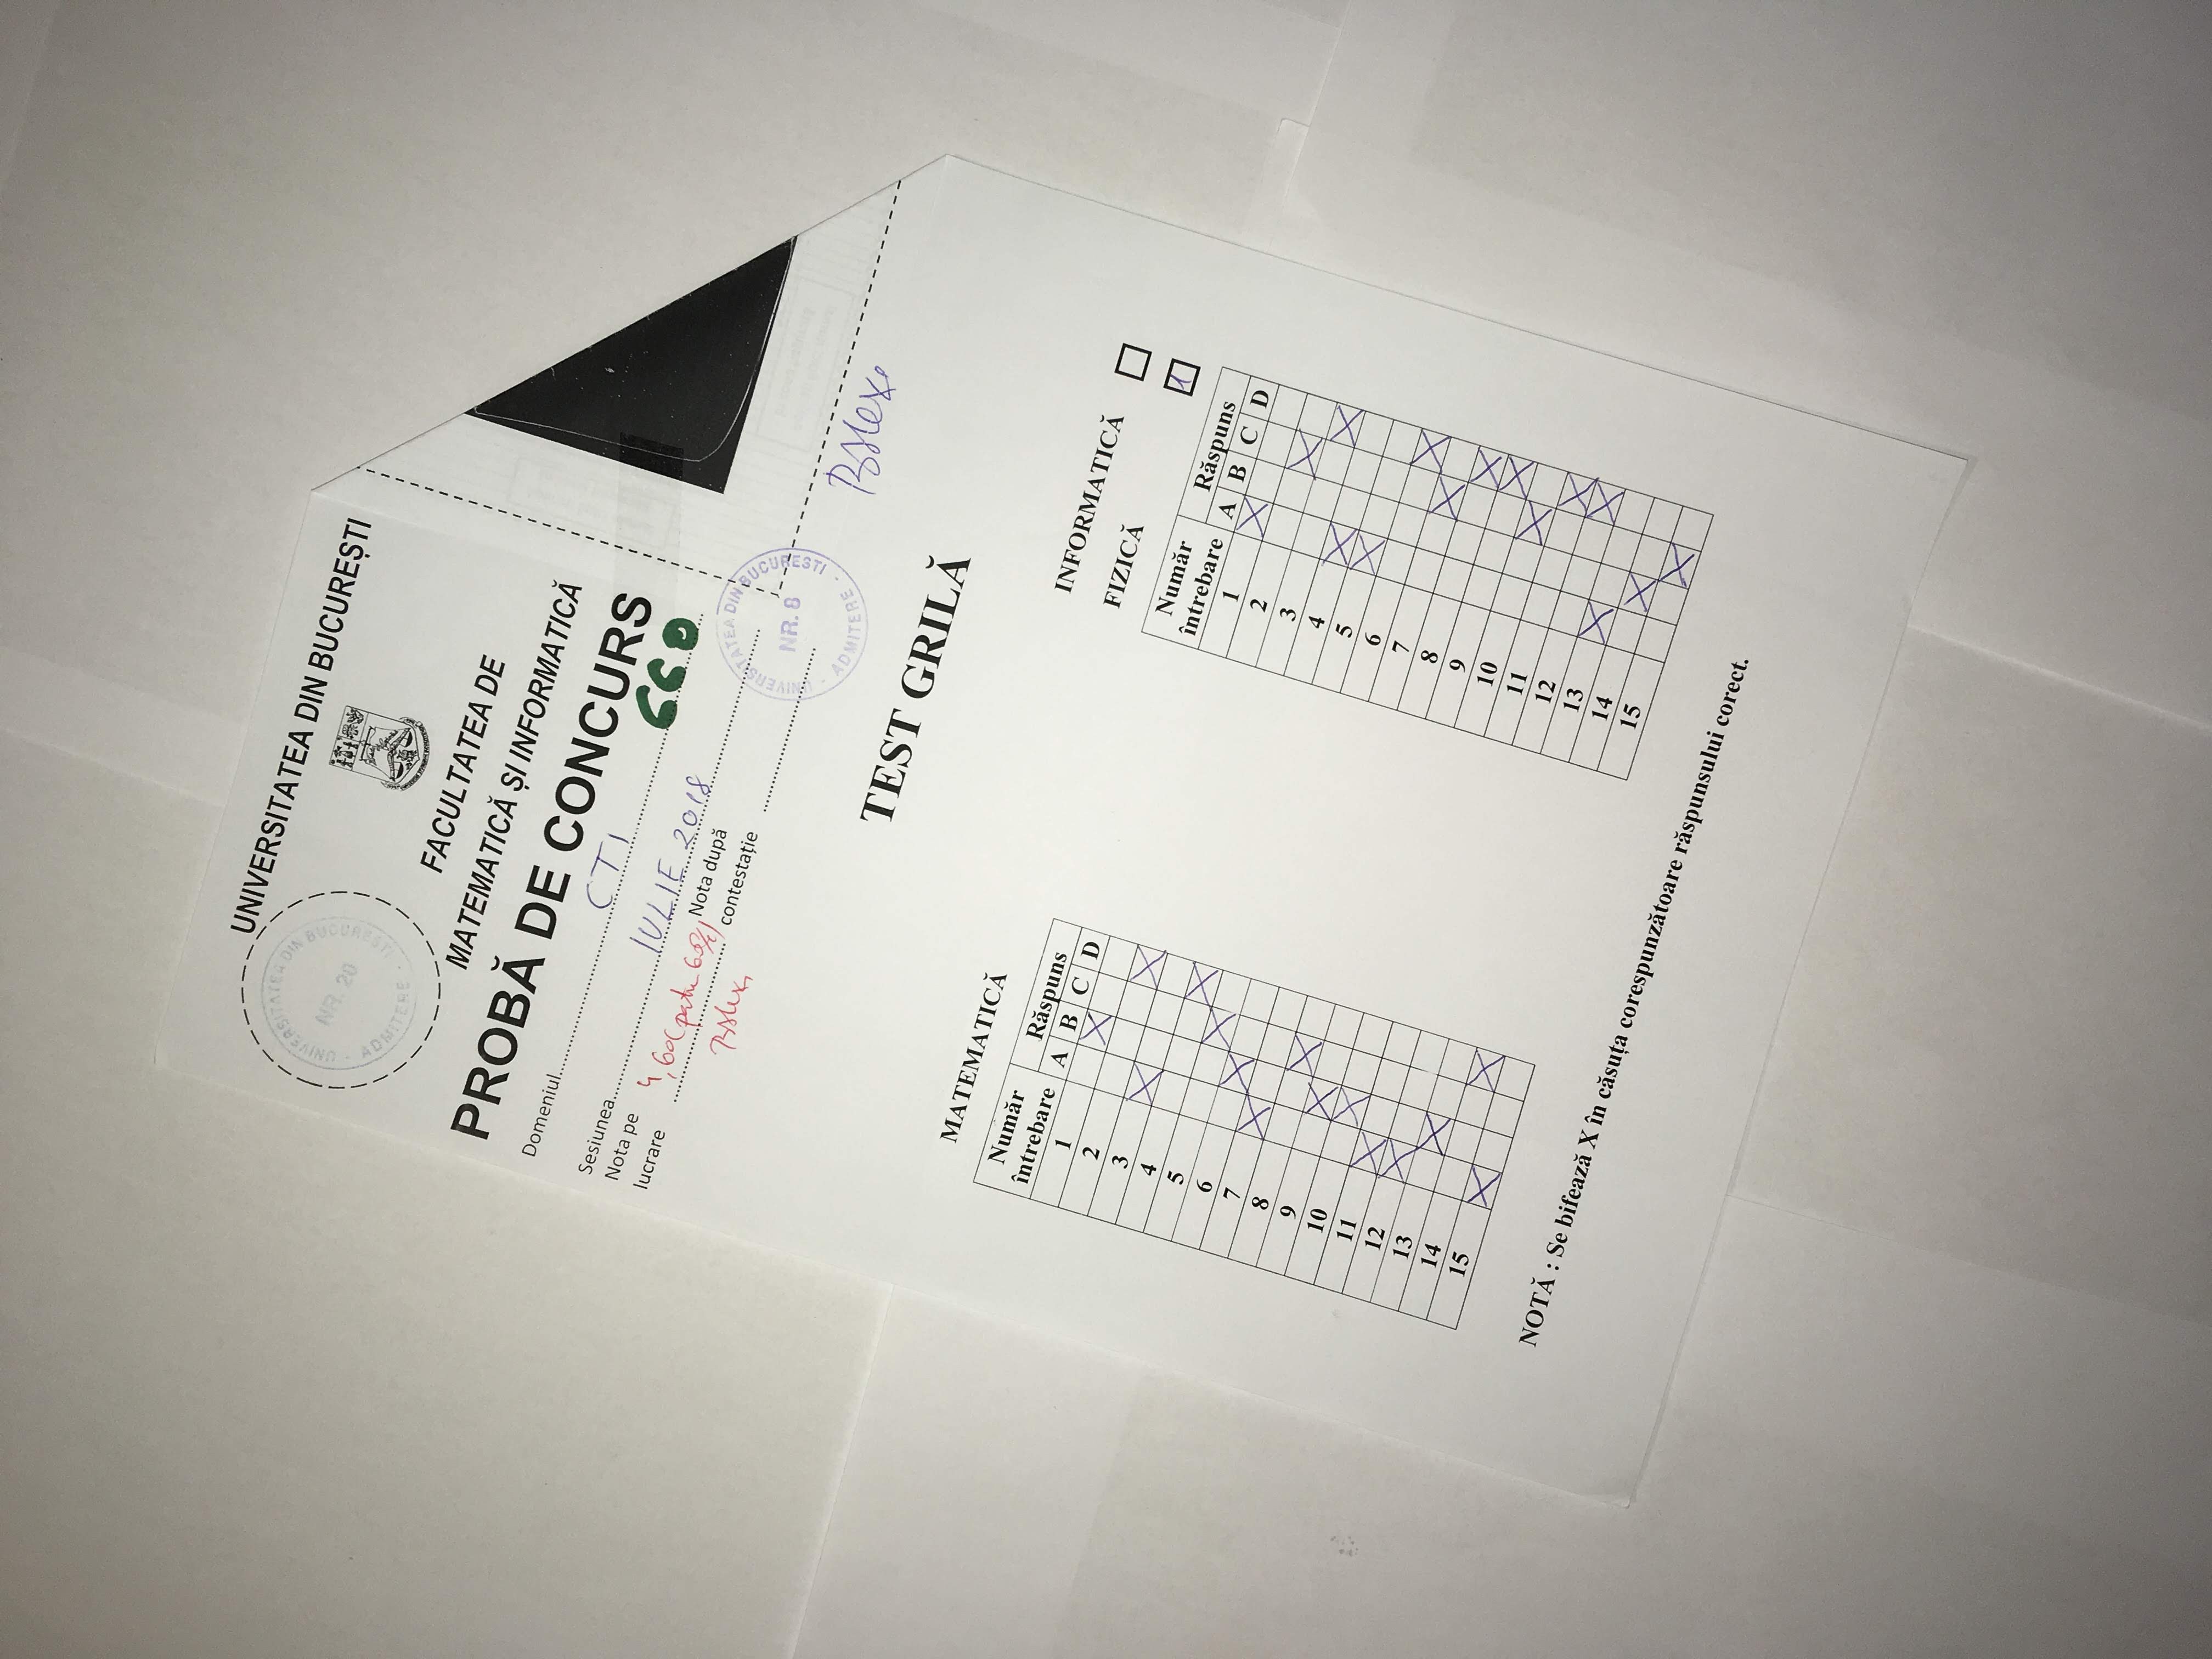 UNIVERSITATEA DIN BUCUREȘTI
UNIVERSITATEA DIN BUCUREȘTI
NR. 20
ADMITERE
FACULTATEA DE
MATEMATICĂ ȘI INFORMATICĂ
PROBĂ DE CONCURS
Domeniul CTI
660
Sesiunea IULIE 2018
Nota pe lucrare 4,60
Nota după contestație
UNIVERSITATEA DIN BUCUREȘTI
NR. 8
ADMITERE
TEST GRILĂ
MATEMATICĂ
Număr întrebare Răspuns
A B C D
1 X
2
3 X X
4
5 X
6 X
7 X
8 X
9 X
10 X
11 X
12 X
13 X
14 X
15 X X
INFORMATICĂ
FIZICĂ
Număr întrebare Răspuns
A B C D
1 X
2
3 X
4 X
5 X
6 X
7
8 X
9 X
10 X
11 X
12 X
13 X
14 X X
15 X X
NOTĂ : Se bifează X în căsuța corespunzătoare răspunsului corect.